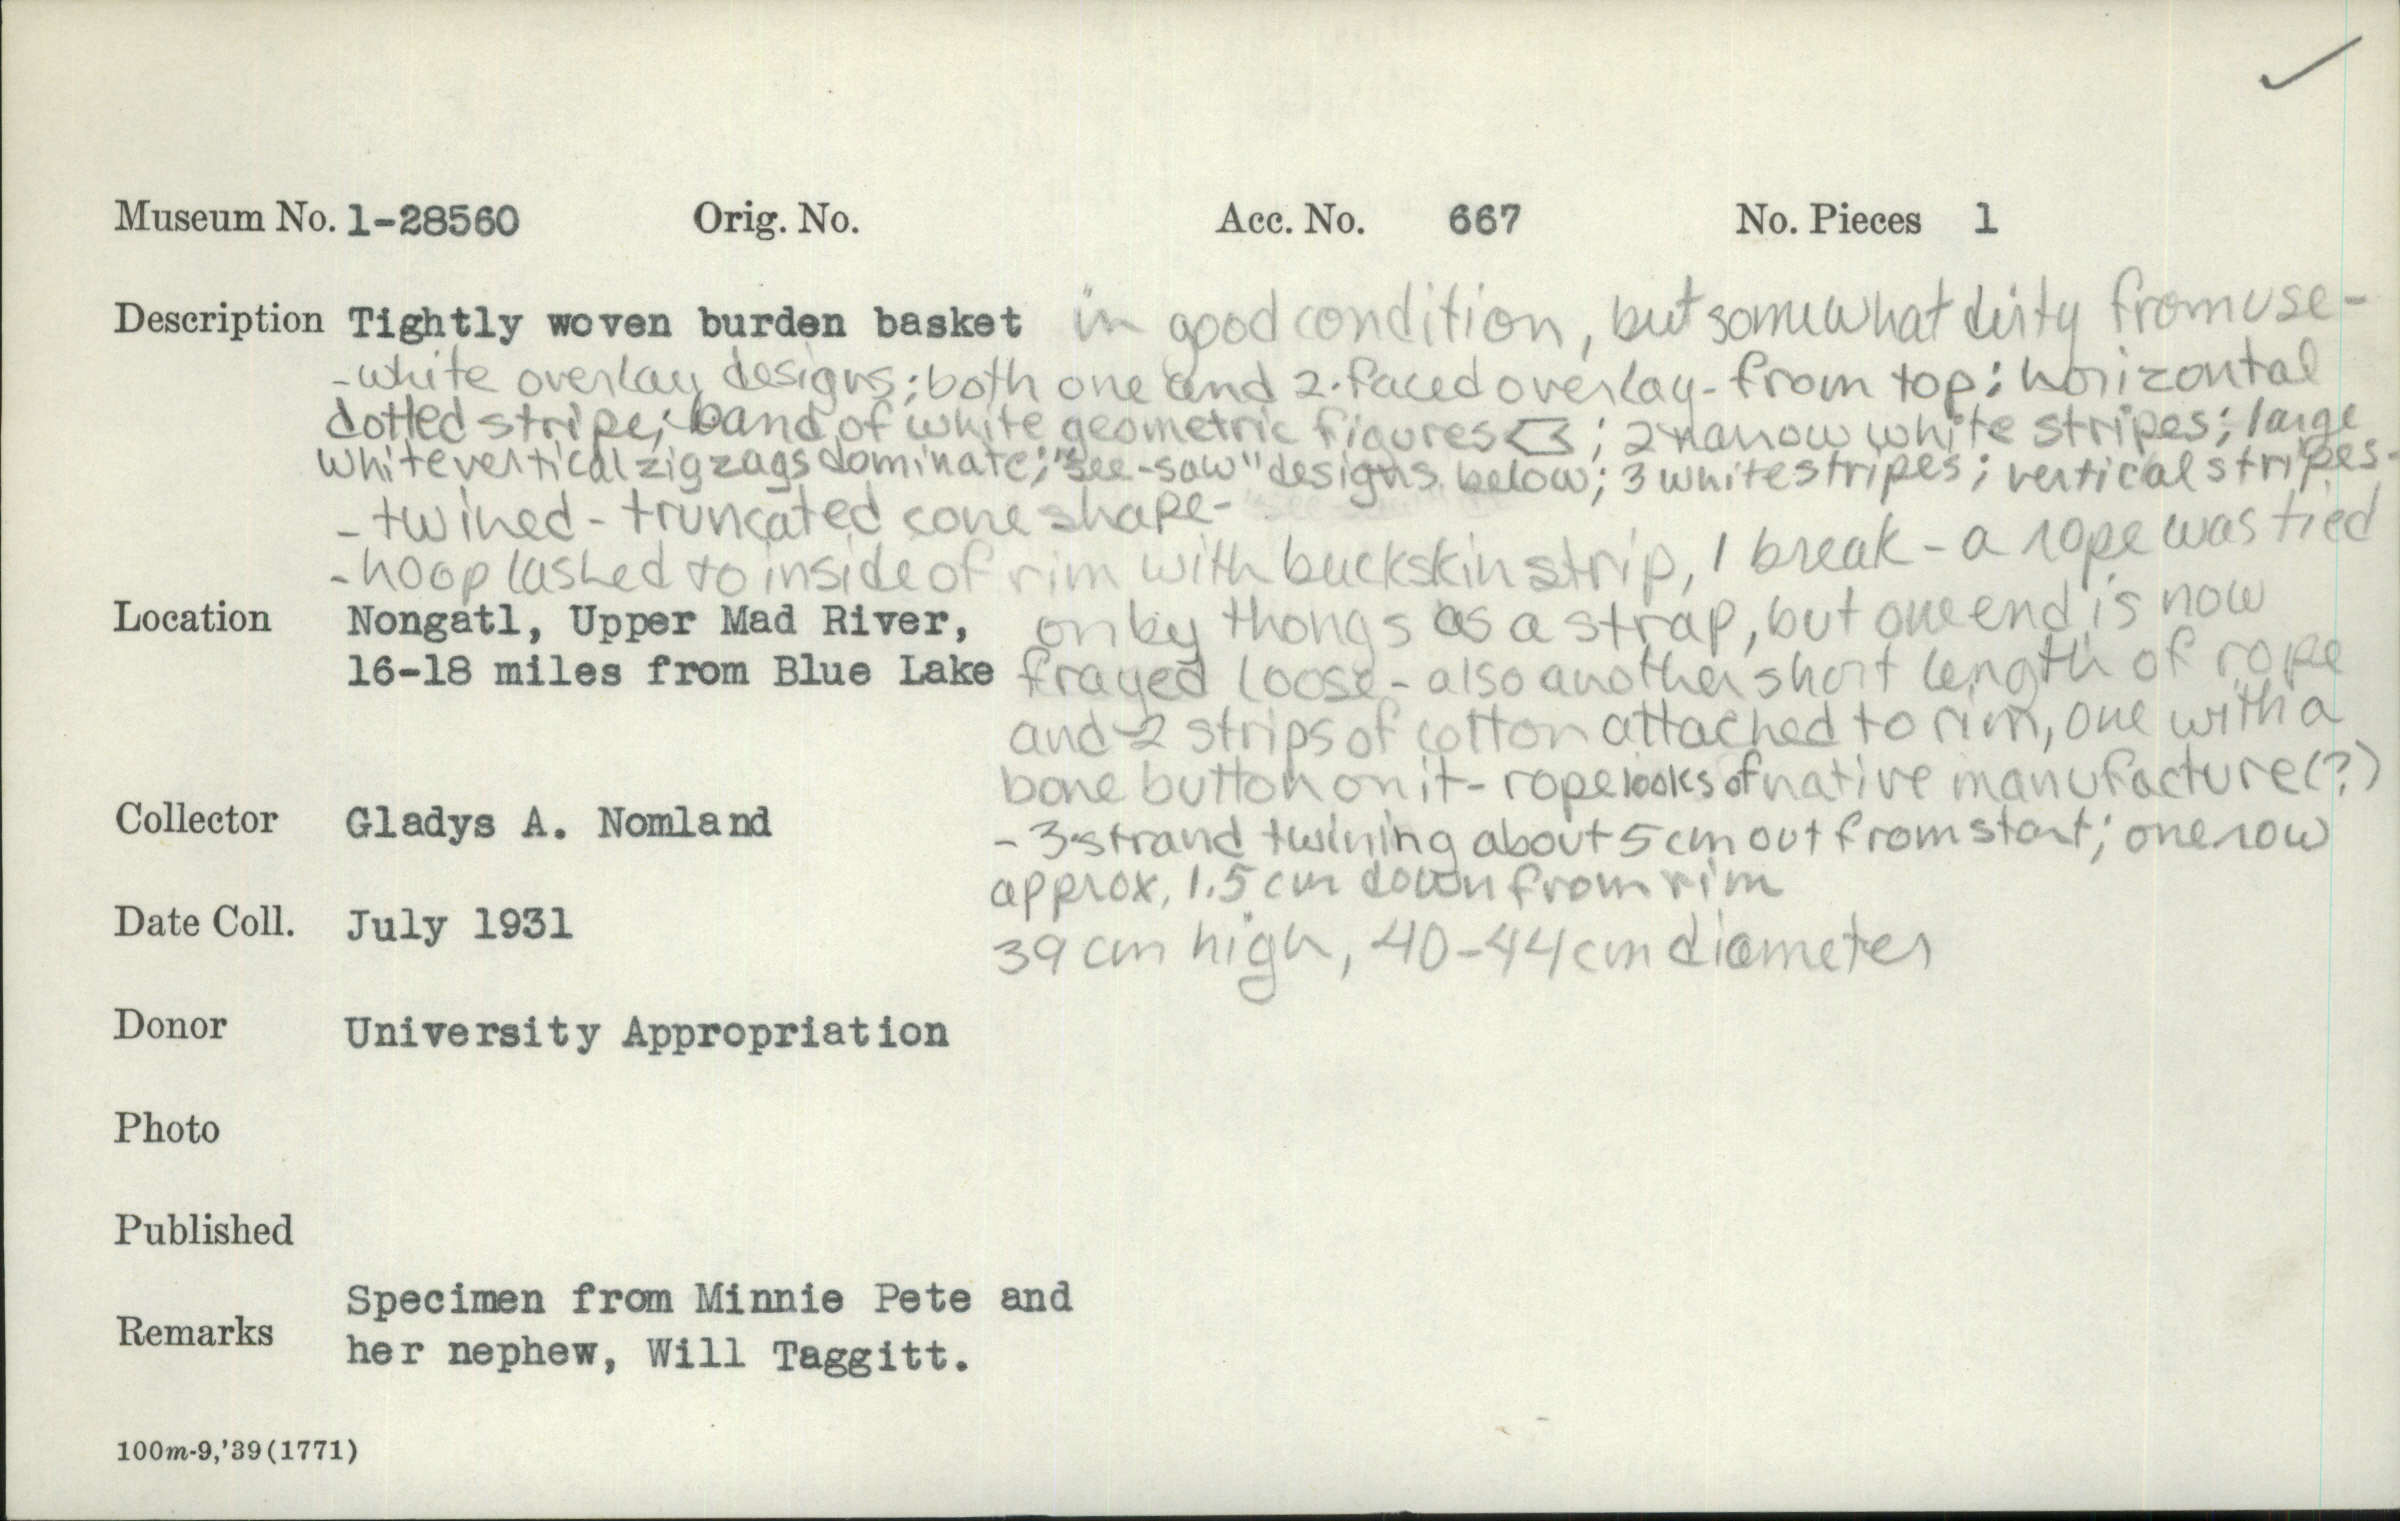 Museum No. 1-28560 Orig. No. Acc. No. 667 No. Pieces 1
Description Tightly woven burden basket in good condition, but somewhat dirty from use -
- white overlay designs; both one and 2-faced overlay - from top: horizontal
dotted stripe; band of white geometric figures; 2 narrow white stripes; large
white vertical zigzags dominate; "see-saw" designs below; 3 white stripes; vertical stripes -
- twined - truncated cone shape -
- hoop lashed to inside of rim with buckskin strip, 1 break - a rope was tied
Location Nongatl, Upper Mad River, on by thongs as a strap, but one end is now
16-18 miles from Blue Lake frayed loose - also another short length of rope
and 2 strips of cotton attached to rim, one with a
bone button on it - rope looks of native manufacture (?)
Collector Gladys A. Nomland - 3-strand twining about 5 cm out from start; one row
approx. 1.5 cm down from rim
Date Coll. July 1931 39 cm high, 40-44 cm diameter
Donor University Appropriation
Photo
Published
Remarks Specimen from Minnie Pete and
her nephew, Will Taggitt.
100m-9,'39(1771)